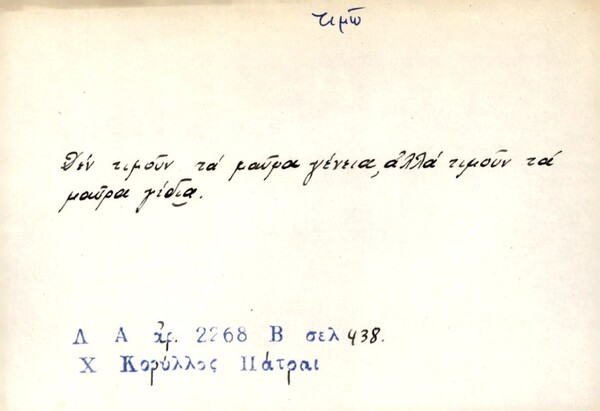 τιμῶ
Δέν τιμοῦν τά μαῦρα γένεια, ἀλλά τιμοῦν τά
μαῦρα γίδια.
Λ Α ἀρ. 2268 Β σελ 438.
Χ Κορύλλος Πάτραι